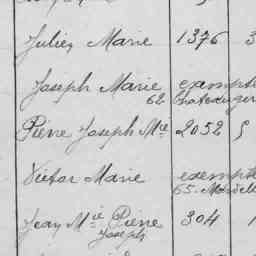 Julien Marie 1376 3
Joseph Marie exempté
62
Pierre Joseph Mie 2052
Victor Marie exempté
65
Jean Mie Pierre 304 1
Joseph